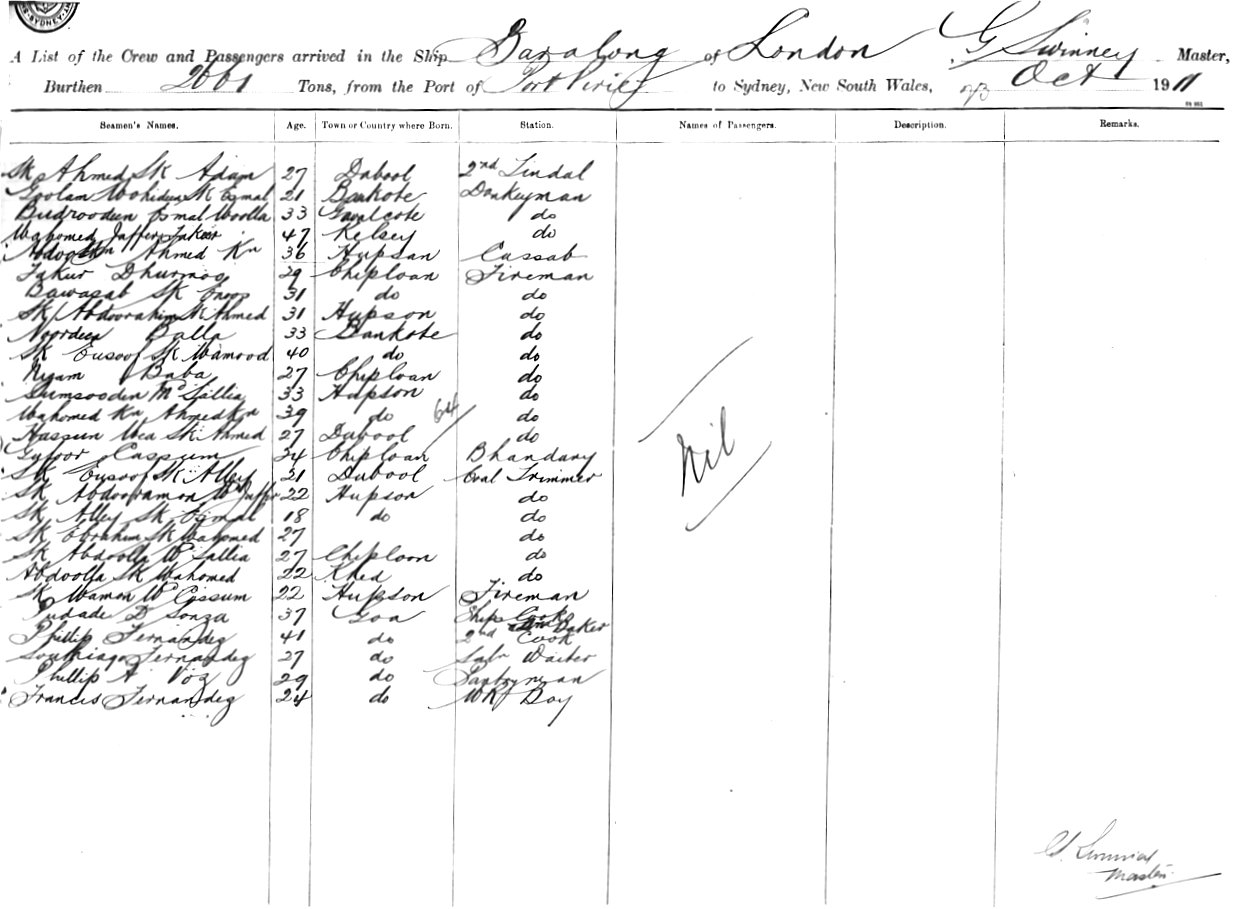 SYDNEY
A List of the Crew and Passengers arrived in the Ship Baralong of London G Swinney Master,
Burthen 2661 Tons, from the Port of Port Pirie to Sydney, New South Wales, Oct 1911
Seamen's Names. Age. Town or Country where Born. Station. Names of Passengers. Description. Remarks.
Sk Ahmed Sk Adam 27 Dabool 2nd Tindal
Goolam Mohideen Sk Esmal 21 Bankote Donkeyman
Budroodeen Esmal Moolla 33 do
Mahomed Jaffer 47 Kelsey do
Ahmed Kn 36 Hupsan Cassab
Fakur Dhurmoo 29 Chiploan Fireman
Bawasab Sk 31 do do
Sk Abdoorahim Sk Ahmed 31 Hupson do
Noordeen Balla 33 Bankote do
Sk Eusoof Sk Mamood 40 do do
Nizam Baba 27 Chiploan do
Sumsooden Md Sallia 33 Hupson do
Mahomed Kn Ahmed Kn 39 do 64 do
Hassun Mea Sk Ahmed 27 Dabool do
Gufoor Cassum 34 Chiploan Bhandary
Sk Eusoof Sk Alley 21 Dabool Coal Trimmer
Sk Abdooramon Md Jaffer 22 Hupson do
Sk Alley Sk Esmal 18 do do
Sk Ebrahim Sk Mahomed 27 do
Sk Abdoolla Md Sallia 27 Chiploon do
Abdoolla Sk Mahomed 22 Khed do
Sk Mamon Md Cassum 22 Hupson Fireman
D Souza 37 Goa Ships Cook
and Baker
Phillip Fernandez 41 do 2nd Cook
Southiago Fernandez 27 do Saln Waiter
Phillip A Voz 29 do Pantryman
Francis Fernandez 24 do Boy
Nil
Master